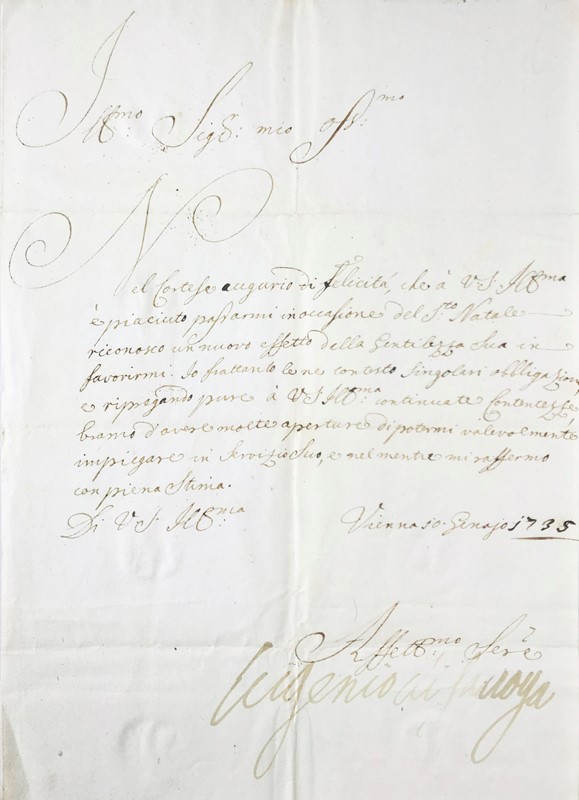 Ill.mo Sig.r mio Oss.mo
Nel Cortese augurio di felicità, che à V.S. Ill.ma
è piaciuto passarmi in occasione del S.to Natale
riconosco un nuovo effetto della Gentilezza Sua in
favorirmi. Io frattanto le ne contesto singolari obbligazioni,
e ripregando pure à V.S. Ill.ma continuate Contentezze
bramo d'avere molte aperture di potermi valevolmente
impiegare in Servizio Suo, e nel mentre mi raffermo
con piena Stima.
Di V.S. Ill.ma Vienna 10 Genajo 1735
Affett.mo Ser.re
Eugenio di Savoya